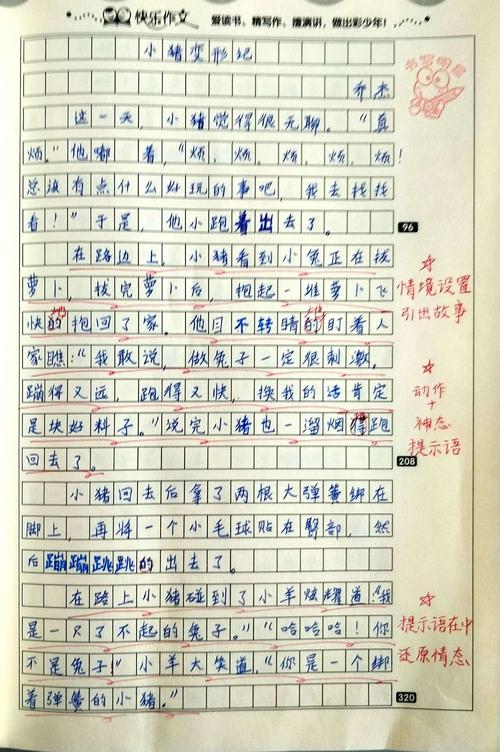 快乐作文 爱读书、精写作、擅演讲，做出彩少年！
小猪变形记
书写明星
乔杰
这一天，小猪觉得很无聊。“真
烦。”他嘟着，“烦，烦，烦，烦，烦！
总该有点什么好玩的事吧，我去找找
看！”于是，他小跑着出去了。
96
在路边上，小猪看到小兔正在拔
萝卜，拔完萝卜后，抱起一堆萝卜飞
情境设置
快的抱回了家。他目不转睛的盯着人
地
地
引出故事
家瞧：“我敢说，做兔子一定很刺激，
蹦得又远，跑得又快，换我的话肯定
动作
+
是块好料子。”说完小猪也一溜烟得跑
地
神态
提示语
回去了。
208
小猪回去后拿了两根大弹簧绑在
脚上，再将一个小毛球贴在臀部，然
后蹦蹦跳跳的出去了。
在路上小猪碰到了小羊炫耀道：“我
是一只了不起的兔子。”“哈哈哈！你
提示语在中
不是兔子”小羊大笑道，“你是一个绑
还原情态
着弹簧的小猪。”
320